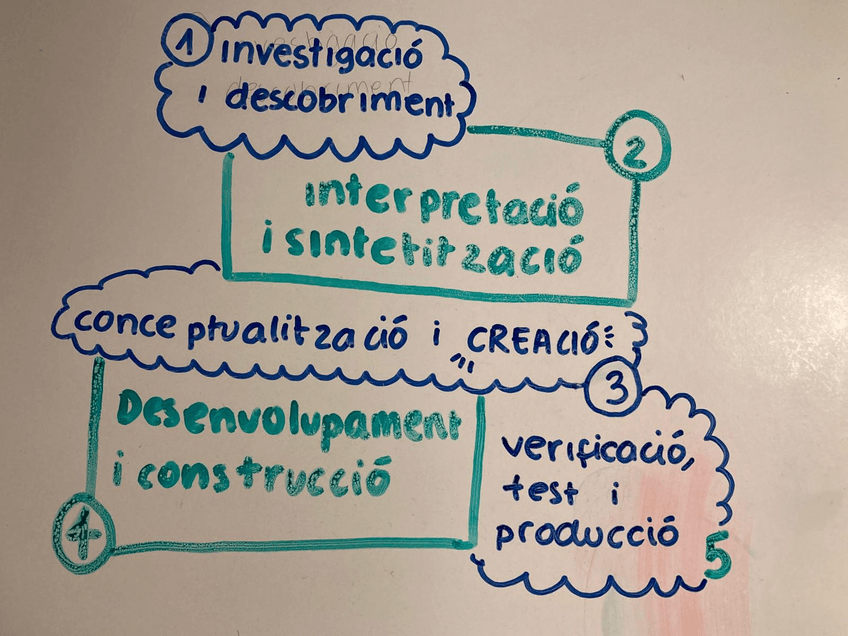 1 investigació
i descobriment
2
interpretació
i sintetització
conceptualització i CREACIÓ
3
Desenvolupament
i construcció
4
verificació,
test i
producció
5